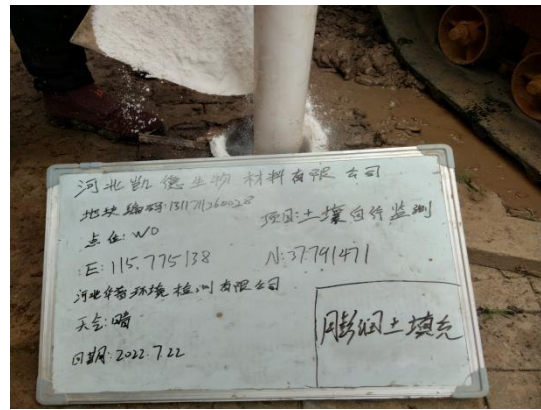 河北凯德生物材料有限公司
地块编码:131171260028
项目:土壤自行监测
点位:W0
E:115.775138
N:37.791471
河北华普环境检测有限公司
天气:晴
日期:2022.7.22
膨润土填充